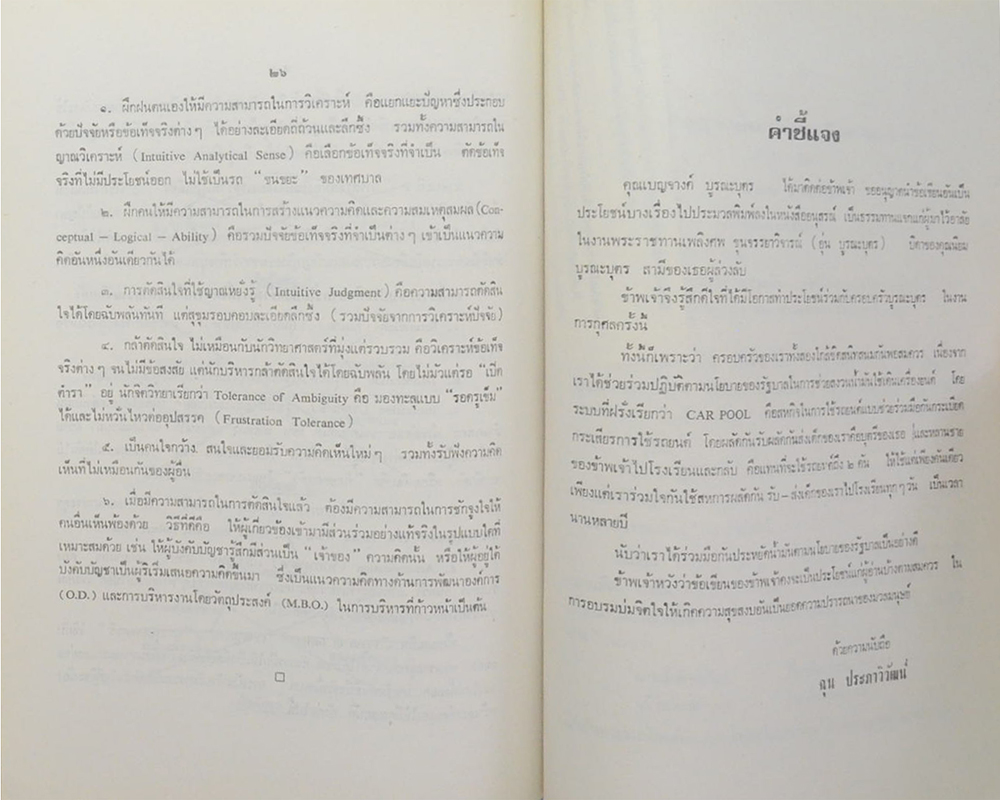 ๒๖
๑. ฝึกฝนตนเองให้มีความสามารถในการวิเคราะห์ คือแยกแยะปัญหาซึ่งประกอบ
ด้วยปัจจัยหรือข้อเท็จจริงต่าง ๆ ได้อย่างละเอียดถี่ถ้วนและลึกซึ้ง รวมทั้งความสามารถใน
ญาณวิเคราะห์ (Intuitive Analytical Sense) คือเลือกข้อเท็จจริงที่จำเป็น ตัดข้อเท็จ
จริงที่ไม่มีประโยชน์ออก ไม่ใช้เป็นรถ “ขนขยะ” ของเทศบาล
๒. ฝึกตนให้มีความสามารถในการสร้างแนวความคิดและความสมเหตุสมผล (Con-
ceptual – Logical – Ability) คือรวมปัจจัยข้อเท็จจริงที่จำเป็นต่าง ๆ เข้าเป็นแนวความ
คิดอันหนึ่งอันเดียวกันได้
๓. การตัดสินใจที่ใช้ญาณหยั่งรู้ (Intuitive Judgment) คือความสามารถตัดสิน
ใจได้โดยฉับพลันทันที แต่สุขุมรอบคอบละเอียดลึกซึ้ง (รวมปัจจัยจากการวิเคราะห์ปัจจัย)
๔. กล้าตัดสินใจ ไม่เหมือนกับนักวิทยาศาสตร์ที่มุ่งแต่รวบรวม คือวิเคราะห์ข้อเท็จ
จริงต่าง ๆ จนไม่มีข้อสงสัย แต่นักบริหารกล้าตัดสินใจได้โดยฉับพลัน โดยไม่มัวแต่รอ “เปิด
ตำรา” อยู่ นักจิตวิทยาเรียกว่า Tolerance of Ambiguity คือ มองทะลุแบบ “รอดรูเข็ม”
ได้และไม่หวั่นไหวต่ออุปสรรค (Frustration Tolerance)
๕. เป็นคนใจกว้าง สนใจและยอมรับความคิดเห็นใหม่ ๆ รวมทั้งรับฟังความคิด
เห็นที่ไม่เหมือนกันของผู้อื่น
๖. เมื่อมีความสามารถในการตัดสินใจแล้ว ต้องมีความสามารถในการชักจูงใจให้
คนอื่นเห็นพ้องด้วย วิธีที่ดีคือ ให้ผู้เกี่ยวข้องเข้ามามีส่วนร่วมอย่างแท้จริงในรูปแบบใดที่
เหมาะสมด้วย เช่น ให้ผู้บังคับบัญชารู้สึกมีส่วนเป็น “เจ้าของ” ความคิดนั้น หรือให้ผู้อยู่ใต้
บังคับบัญชาเป็นผู้ริเริ่มเสนอความคิดขึ้นมา ซึ่งเป็นแนวความคิดทางด้านการพัฒนาองค์การ
(O.D.) และการบริหารงานโดยวัตถุประสงค์ (M.B.O.) ในการบริหารที่ก้าวหน้าเป็นต้น
คำชี้แจง
คุณเบญจางค์ บูรณะบุตร ได้มาติดต่อข้าพเจ้า ขออนุญาตนำข้อเขียนอันเป็น
ประโยชน์บางเรื่องไปประมวลพิมพ์ลงในหนังสืออนุสรณ์ เป็นธรรมทานแจกแก่ผู้มาไว้อาลัย
ในงานพระราชทานเพลิงศพ ขุนจรรยาวิจารณ์ (อุ่น บูรณะบุตร) บิดาของคุณนิยม
บูรณะบุตร สามีของเธอผู้ล่วงลับ
ข้าพเจ้าจึงรู้สึกดีใจที่ได้มีโอกาสทำประโยชน์ร่วมกับครอบครัวบูรณะบุตร ในงาน
การกุศลครั้งนี้
ทั้งนี้ก็เพราะว่า ครอบครัวของเราทั้งสองใกล้ชิดสนิทสนมกันพอสมควร เนื่องจาก
เราได้ช่วยร่วมปฏิบัติตามนโยบายของรัฐบาลในการช่วยสงวนน้ำมันใช้เดินเครื่องยนต์ โดย
ระบบที่ฝรั่งเรียกว่า CAR POOL คือสหกิจในการใช้รถยนต์แบบช่วยร่วมมือกันกระเบียด
กระเสียรการใช้รถยนต์ โดยผลัดกันรับผลัดกันส่งเด็กของเราคือบุตรีของเธอ และหลานชาย
ของข้าพเจ้าไปโรงเรียนและกลับ คือแทนที่จะใช้รถยนต์ถึง ๒ คัน ให้ใช้แต่เพียงคันเดียว
เพียงแต่เราร่วมใจกันใช้สหการผลัดกัน รับ – ส่งเด็กของเราไปโรงเรียนทุก ๆ วัน เป็นเวลา
นานหลายปี
นับว่าเราได้ร่วมมือกันประหยัดน้ำมันตามนโยบายของรัฐบาลเป็นอย่างดี
ข้าพเจ้าหวังว่าข้อเขียนของข้าพเจ้าคงจะเป็นประโยชน์แก่ผู้อ่านบ้างตามสมควร ใน
การอบรมบ่มจิตใจให้เกิดความสุขสงบอันเป็นยอดความปรารถนาของมวลมนุษย์
ด้วยความนับถือ
ฉุน ประภาวิวัฒน์